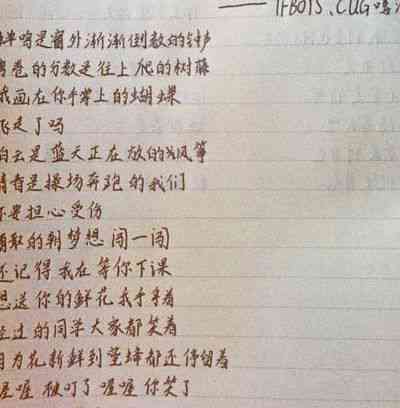 —— TFBOYS、CUG嘻
蝉鸣是窗外渐渐倒数的钟声
考卷的分数是往上爬的树藤
我画在你手掌上的蝴蝶
飞走了吗
白云是蓝天正在放的风筝
青春是操场奔跑的我们
不要担心受伤
勇敢的朝梦想闯一闯
还记得我在等你下课
想送你的鲜花我手拿着
经过的同学大家都笑着
因为花新鲜到蜜蜂都还停留着
喔喔 被叮了喔喔 你笑了